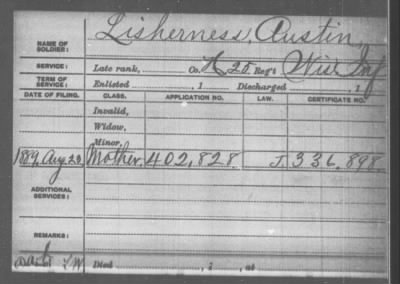 NAME OF SOLDIER: Lisherness, Austin,
SERVICE: Late rank, Co. K 25 Reg't Wis Inf
TERM OF SERVICE: Enlisted , 1 Discharged , 1
DATE OF FILING. CLASS. APPLICATION NO. LAW. CERTIFICATE NO.
Invalid,
Widow,
Minor,
1889, Aug 20 Mother, 402,828 J. 336,898.
ADDITIONAL SERVICES:
REMARKS:
Died , 1 , at